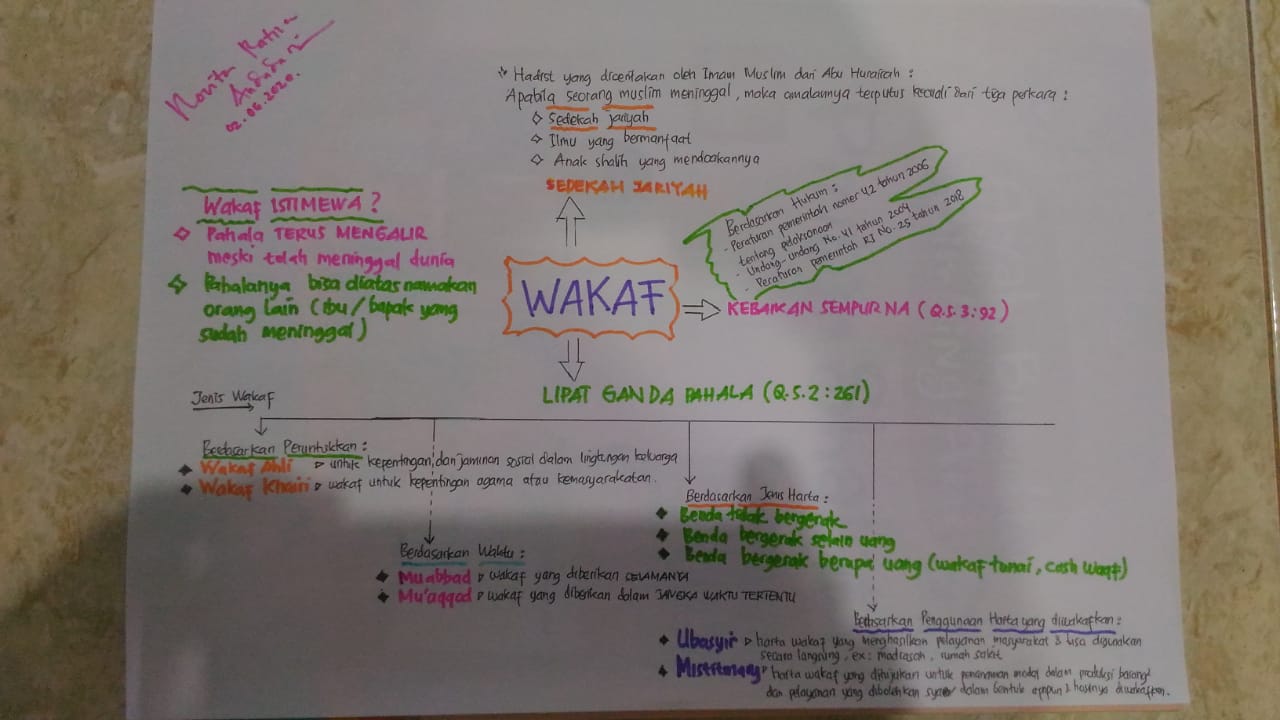 Novita Ratna
Andadari
02.06.2020.
* Hadist yang diceritakan oleh Imam Muslim dari Abu Hurairah :
Apabila seorang muslim meninggal, maka amalannya terputus kecuali dari tiga perkara :
◇ Sedekah jariyah
◇ Ilmu yang bermanfaat
◇ Anak shalih yang mendoakannya
SEDEKAH JARIYAH
Wakaf ISTIMEWA ?
◇ Pahala TERUS MENGALIR
meski telah meninggal dunia
◇ Pahalanya bisa diatasnamakan
orang lain (ibu / bapak yang
sudah meninggal)
Berdasarkan Hukum :
- Peraturan pemerintah nomer 42 tahun 2006
tentang pelaksanaan
- Undang-undang No. 41 tahun 2004
- Peraturan pemerintah RI No. 25 tahun 2018
WAKAF
KEBAIKAN SEMPURNA (Q.S. 3:92)
LIPAT GANDA PAHALA (Q.S. 2 : 261)
Jenis Wakaf
Berdasarkan Peruntukkan :
◆ Wakaf Ahli ▷ untuk kepentingan, dan jaminan sosial dalam lingkungan keluarga
◆ Wakaf Khairi ▷ wakaf untuk kepentingan agama atau kemasyarakatan.
Berdasarkan Waktu :
◆ Muabbad ▷ wakaf yang diberikan SELAMANYA
◆ Mu'aqqad ▷ wakaf yang diberikan dalam JANGKA WAKTU TERTENTU
Berdasarkan Jenis Harta :
◆ Benda tidak bergerak
◆ Benda bergerak selain uang
◆ Benda bergerak berupa uang (wakaf tunai, cash waqf)
Berdasarkan Penggunaan Harta yang diwakafkan :
◆ Ubasyir ▷ harta wakaf yang menghasilkan pelayanan masyarakat & bisa digunakan
secara langsung, ex : madrasah, rumah sakit
◆ ▷ harta wakaf yang ditujukan untuk penanaman modal dalam produksi barang2
dan pelayanan yang dibolehkan dalam bentuk apapun & hasilnya diwakafkan.